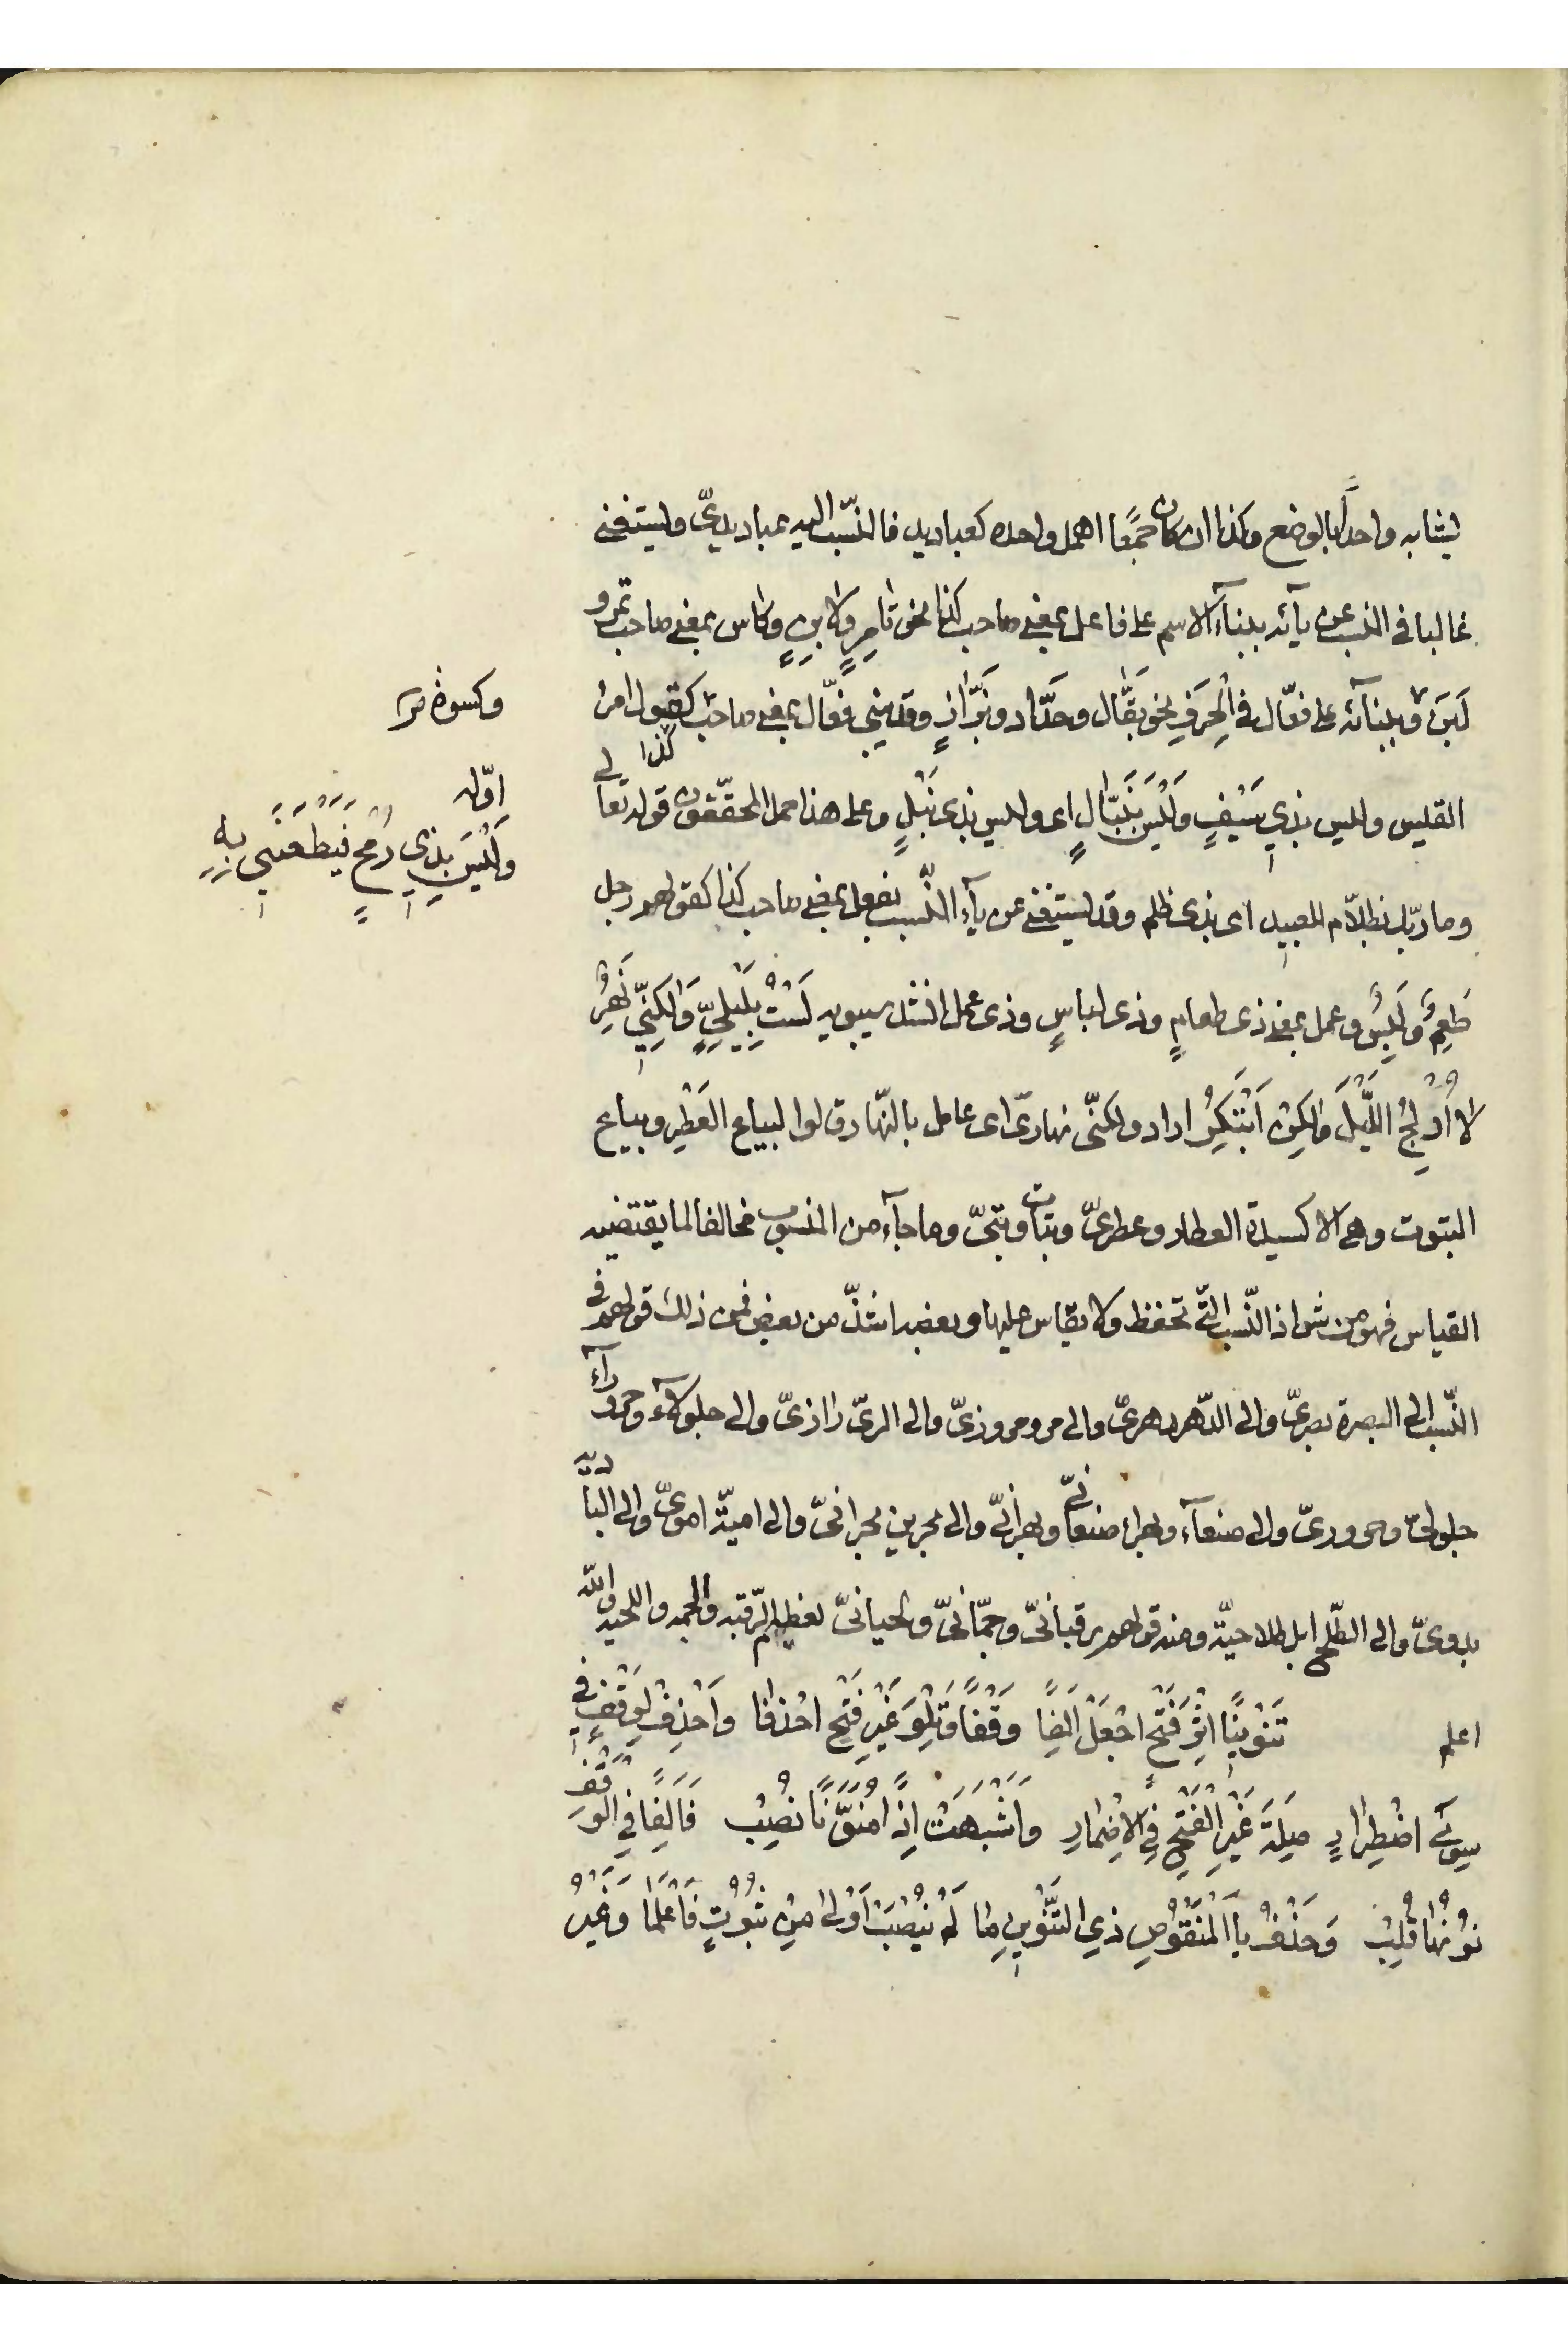 يشابه واحدًا بالوضع وكذا ان كان جمعًا اهمل واحده كعباديد فالنّسب اليه عباديديّ ويستغنى
غالبا فى النسب عن يآئه ببنآء الاسم على فاعل بمعنى صاحب كذا نحو تامِرٍ ولابنٍ وكاس بمعنى صاحب تمر و
لَبَن وببنآئه على فعّال فى الْحِرَفِ نحو بَقَّال وحَدَّاد وبَزَّازٍ وقد يبنى فعّال بمعنى صاحب كذا كقول امرئ
القيس وليس بذي سَيْفٍ وَلَيْسَ بِنَبَّالٍ اى وليس بذى نَبْلٍ وعلى هذا حمل المحقّقون قوله تعالى
وما ربّك بظلّام للعبيد اى بذى ظلم وقد يستغنى عن يآء النّسب بفعل بمعنى صاحب كذا كقولهم رجل
طَعِمٌ وَلَبِسٌ وعمل بمعنى ذى طعامٍ وذى لباسٍ وذى عمل انشد سيبويه لَسْتُ بِلَيْلِيٍّ وَلٰكِنِّي نَهِرُ
لا اُدْلِجُ اللَّيْلَ وَلٰكِنْ اَبْتَكِرُ اراد ولكنّى نهارىّ اى عامل بالنّهار وقالوا لبياع العَطِر وبياع
البتوت وهى الاكسية العطار وعطرىّ وبتات وبتىّ وما جآء من المنسوب مخالفا لما يقتضيه
القياس فهو من شواذ النّسب الّتى تحفظ ولا يقاس عليها وبعضه اشذّ من بعض فمن ذلك قولهم فى
النّسب الى البصرة بصرىّ والى الدّهر دهرىّ والى مرو مروزىّ والى الرىّ رازىّ والى جلولآء وحرورآء
جلولىّ وحرورىّ والى صنعآء وبهراء صنعانىّ وبهرانىّ والى بحرين بحرانىّ والى اميّة اموىّ والى البادية
بدوىّ والى الطّلح ابل طلاحيّة ومنه قولهم رقبانىّ وجمّانىّ ولحيانىّ لعظيم الرّقبه والجمه واللحيه والله
اعلم تَنْوِينًا اثْرَ فَتْحٍ اجْعَلْ اَلِفًا وَقْفًا وَتِلْوَ غَيْرِ فَتْحٍ احْذفا وَاحْذِفْ لِوَقْفٍ فِي
سِوَى اضْطِرَارٍ صِلَةَ غَيْرِ الْفَتْحِ فِي الْاِضْمَارِ وَاَشْبَهَتْ اِذًا مُنَوَّنًا نُصِبْ فَاَلِفًا فِي الْوَقْفِ
نُوْنُهَا قُلِبْ وَحَذْفُ يَا الْمَنْقُوْصِ ذِي التَّنْوِيْنِ مَا لَمْ يُنْصَبْ اَوْلٰى مِنْ ثُبُوْتٍ فَاعْلَمَا وَغَيْرُ
وكسوة
اوّله
وَلَيْسَ بِذِي رُمْحٍ فَيَطْعَنَنِي بِهِ